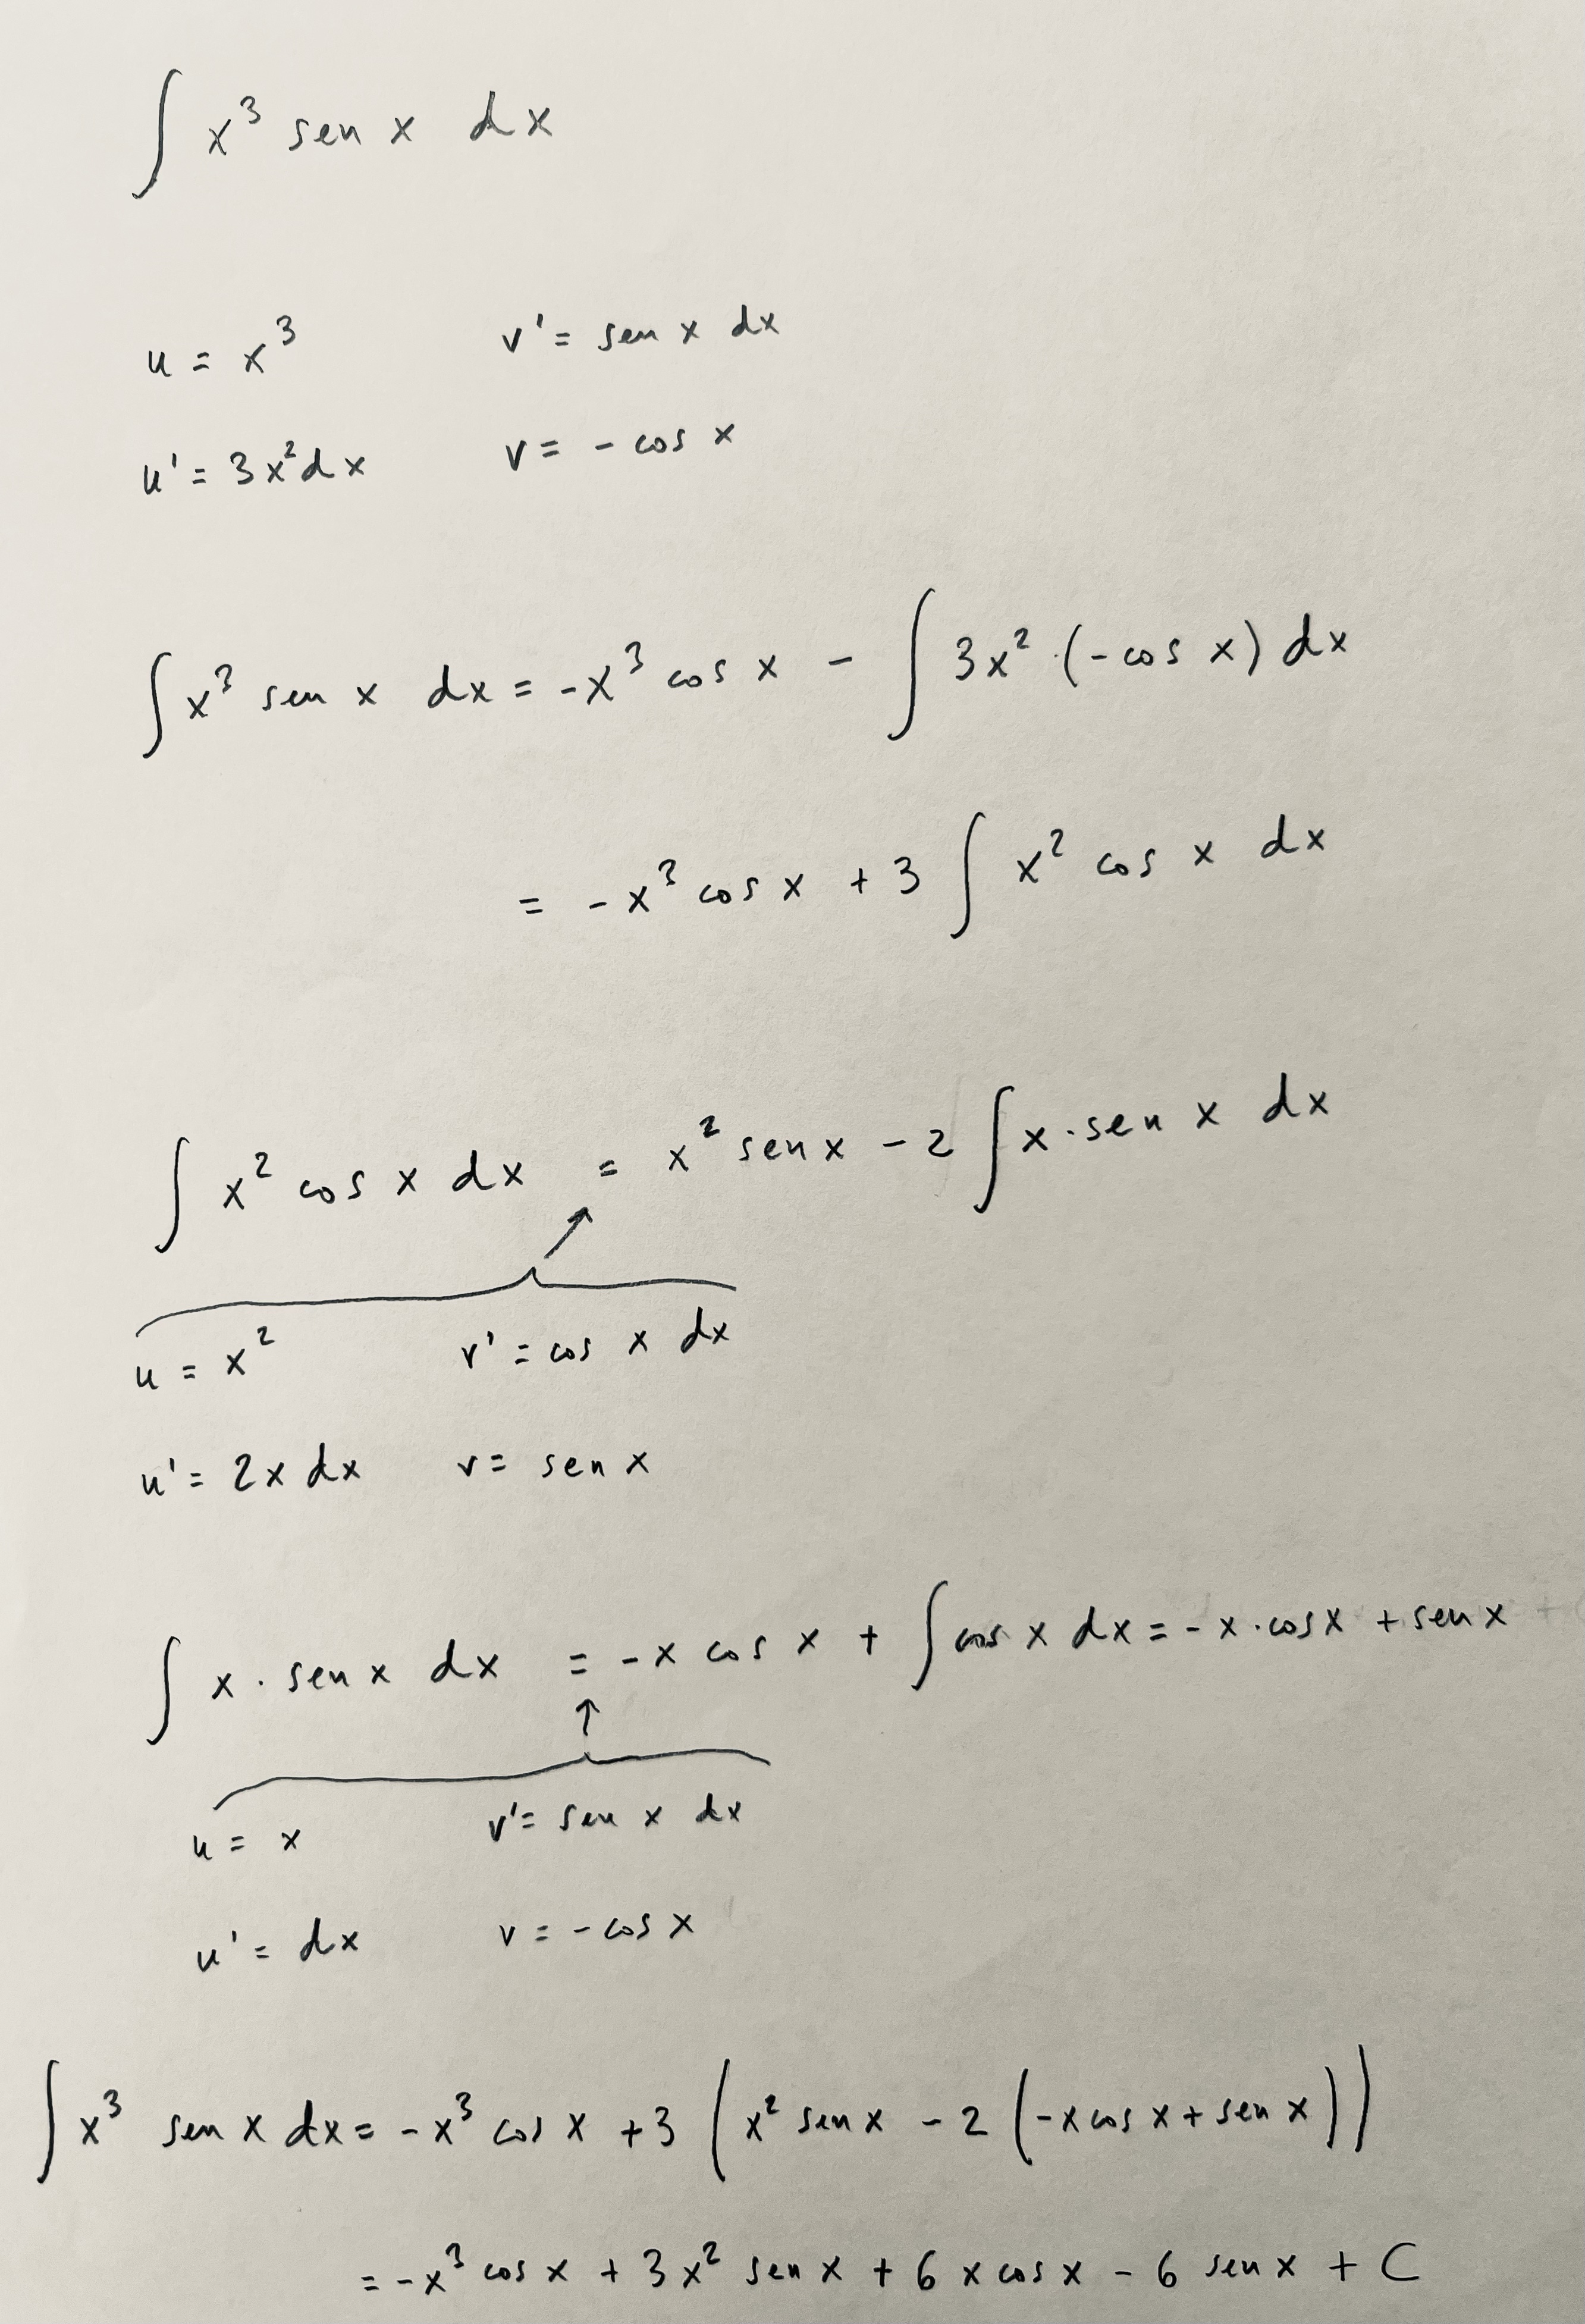 ∫ x³ sen x dx
u = x³ v' = sen x dx
u' = 3x²dx v = - cos x
∫ x³ sen x dx = -x³ cos x - ∫ 3x² · (-cos x) dx
= -x³ cos x + 3 ∫ x² cos x dx
∫ x² cos x dx = x² sen x - 2 ∫ x · sen x dx
u = x² v' = cos x dx
u' = 2x dx v = sen x
∫ x · sen x dx = -x cos x + ∫ cos x dx = - x · cos x + sen x
u = x v' = sen x dx
u' = dx v = - cos x
∫ x³ sen x dx = -x³ cos x + 3 (x² sen x - 2 (-x cos x + sen x))
= -x³ cos x + 3x² sen x + 6 x cos x - 6 sen x + C